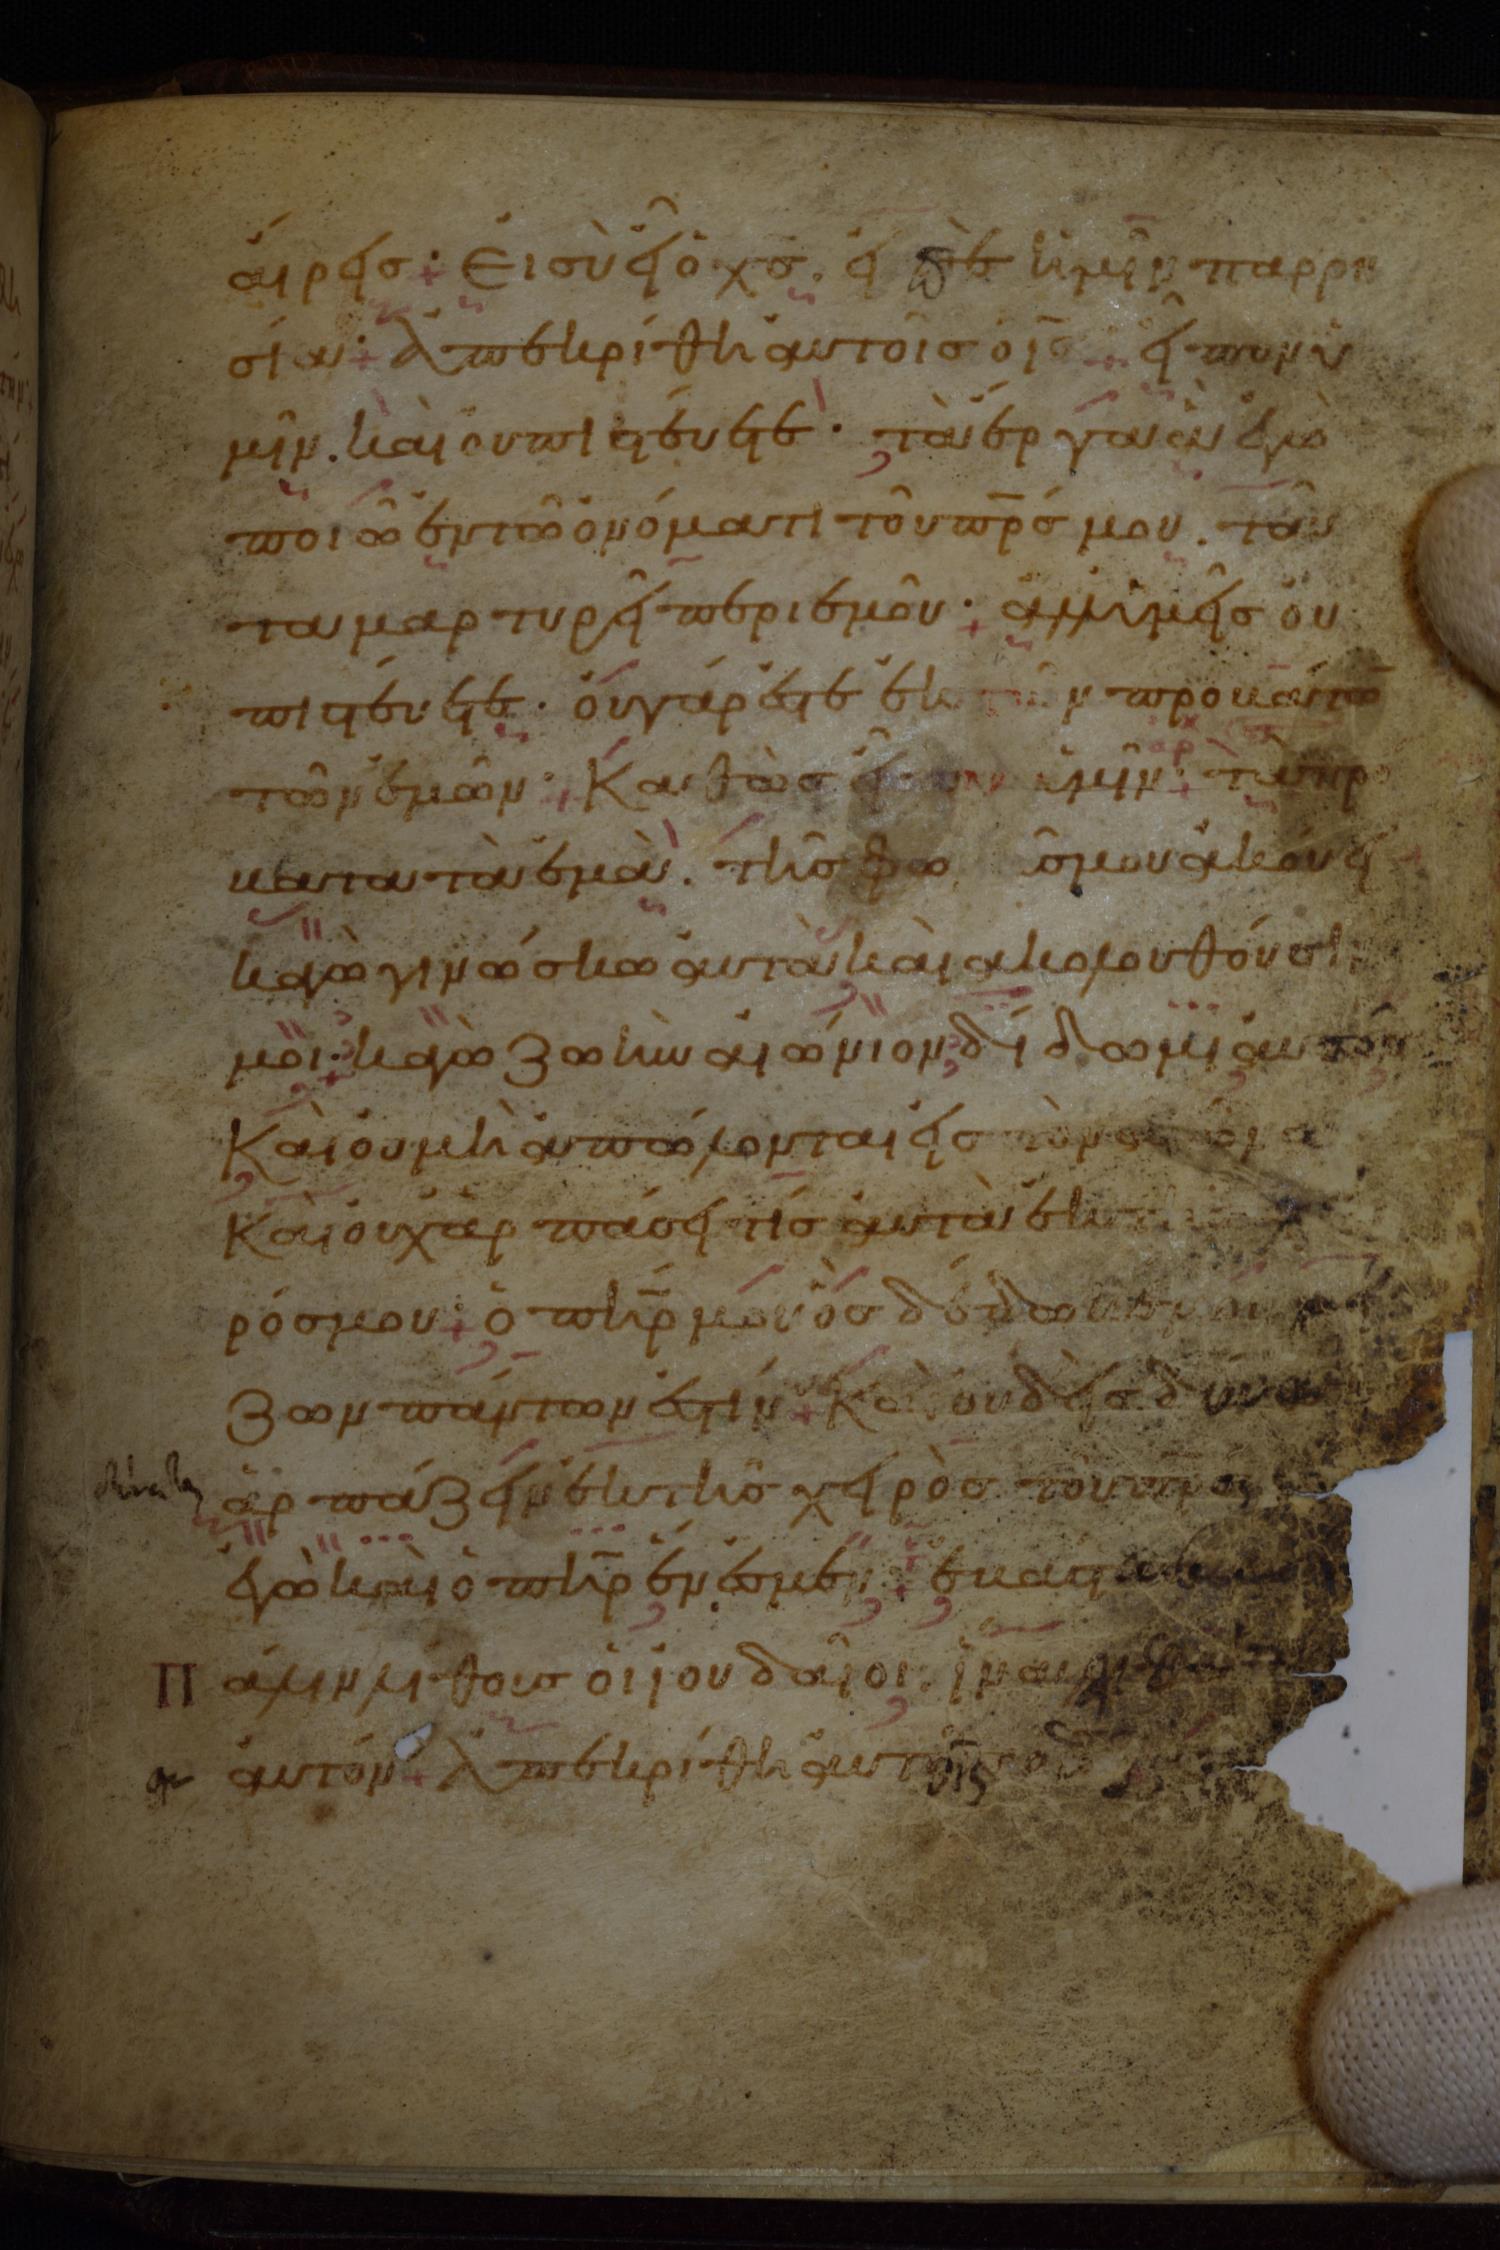 αίρεις· Ει σὺ εἶ ὁ χς. εἰπὲ ἡμῖν παρρη
σίαν· Ἀπεκρίθη αυτοῖς ὁ ις εἶπον ὑ
μῖν. καὶ ου πιστεύετε· τὰ έργα ὰ ἐγὼ
ποιῶ ἐν τῶ ὀνόματι τοῦ πρς μου. ταῦ
τα μαρτυρεῖ περι εμοῦ· ἀλλ ὑμεῖς ου
πιστεύετε· ὀυ γάρ ἐστε ἐκ τῶν προβάτω
τῶν ἐμῶν· Καθὼς εἶπον ὑμῖν· τὰ πρό
βατα τὰ ἐμὰ. τῆς φω σμου ἀκούει
καγὼ γινώσκω ἀυτὰ καὶ ακολουθούσι
μοι· καγὼ ζωὴν αἰώνιον δίδωμι ἀυτοῖς
Καὶ ου μὴ ἀπόλωνται εἰς τὸν αιῶνα
Καὶ ουχ ἁρπάσει τίς ἀυτὰ ἐκ τῆς
ρός μου· ὁ πηρ μου ὃς δέδωκεν μοι μεί
ζων πάντων ἐστίν· Καὶ ουδεὶς δύνα
ἁρπάζειν ἐκ τῆς χειρὸς τοῦ πρς
ἐγὼ καὶ ὁ πηρ ἕν ἐσμεν· ἐβάστασαν
Πάλιν λίθους ὁι ιουδαῖοι. ἵνα λιθάσω
ἀυτόν· Ἀπεκρίθη ἀυτοῖς ὁ